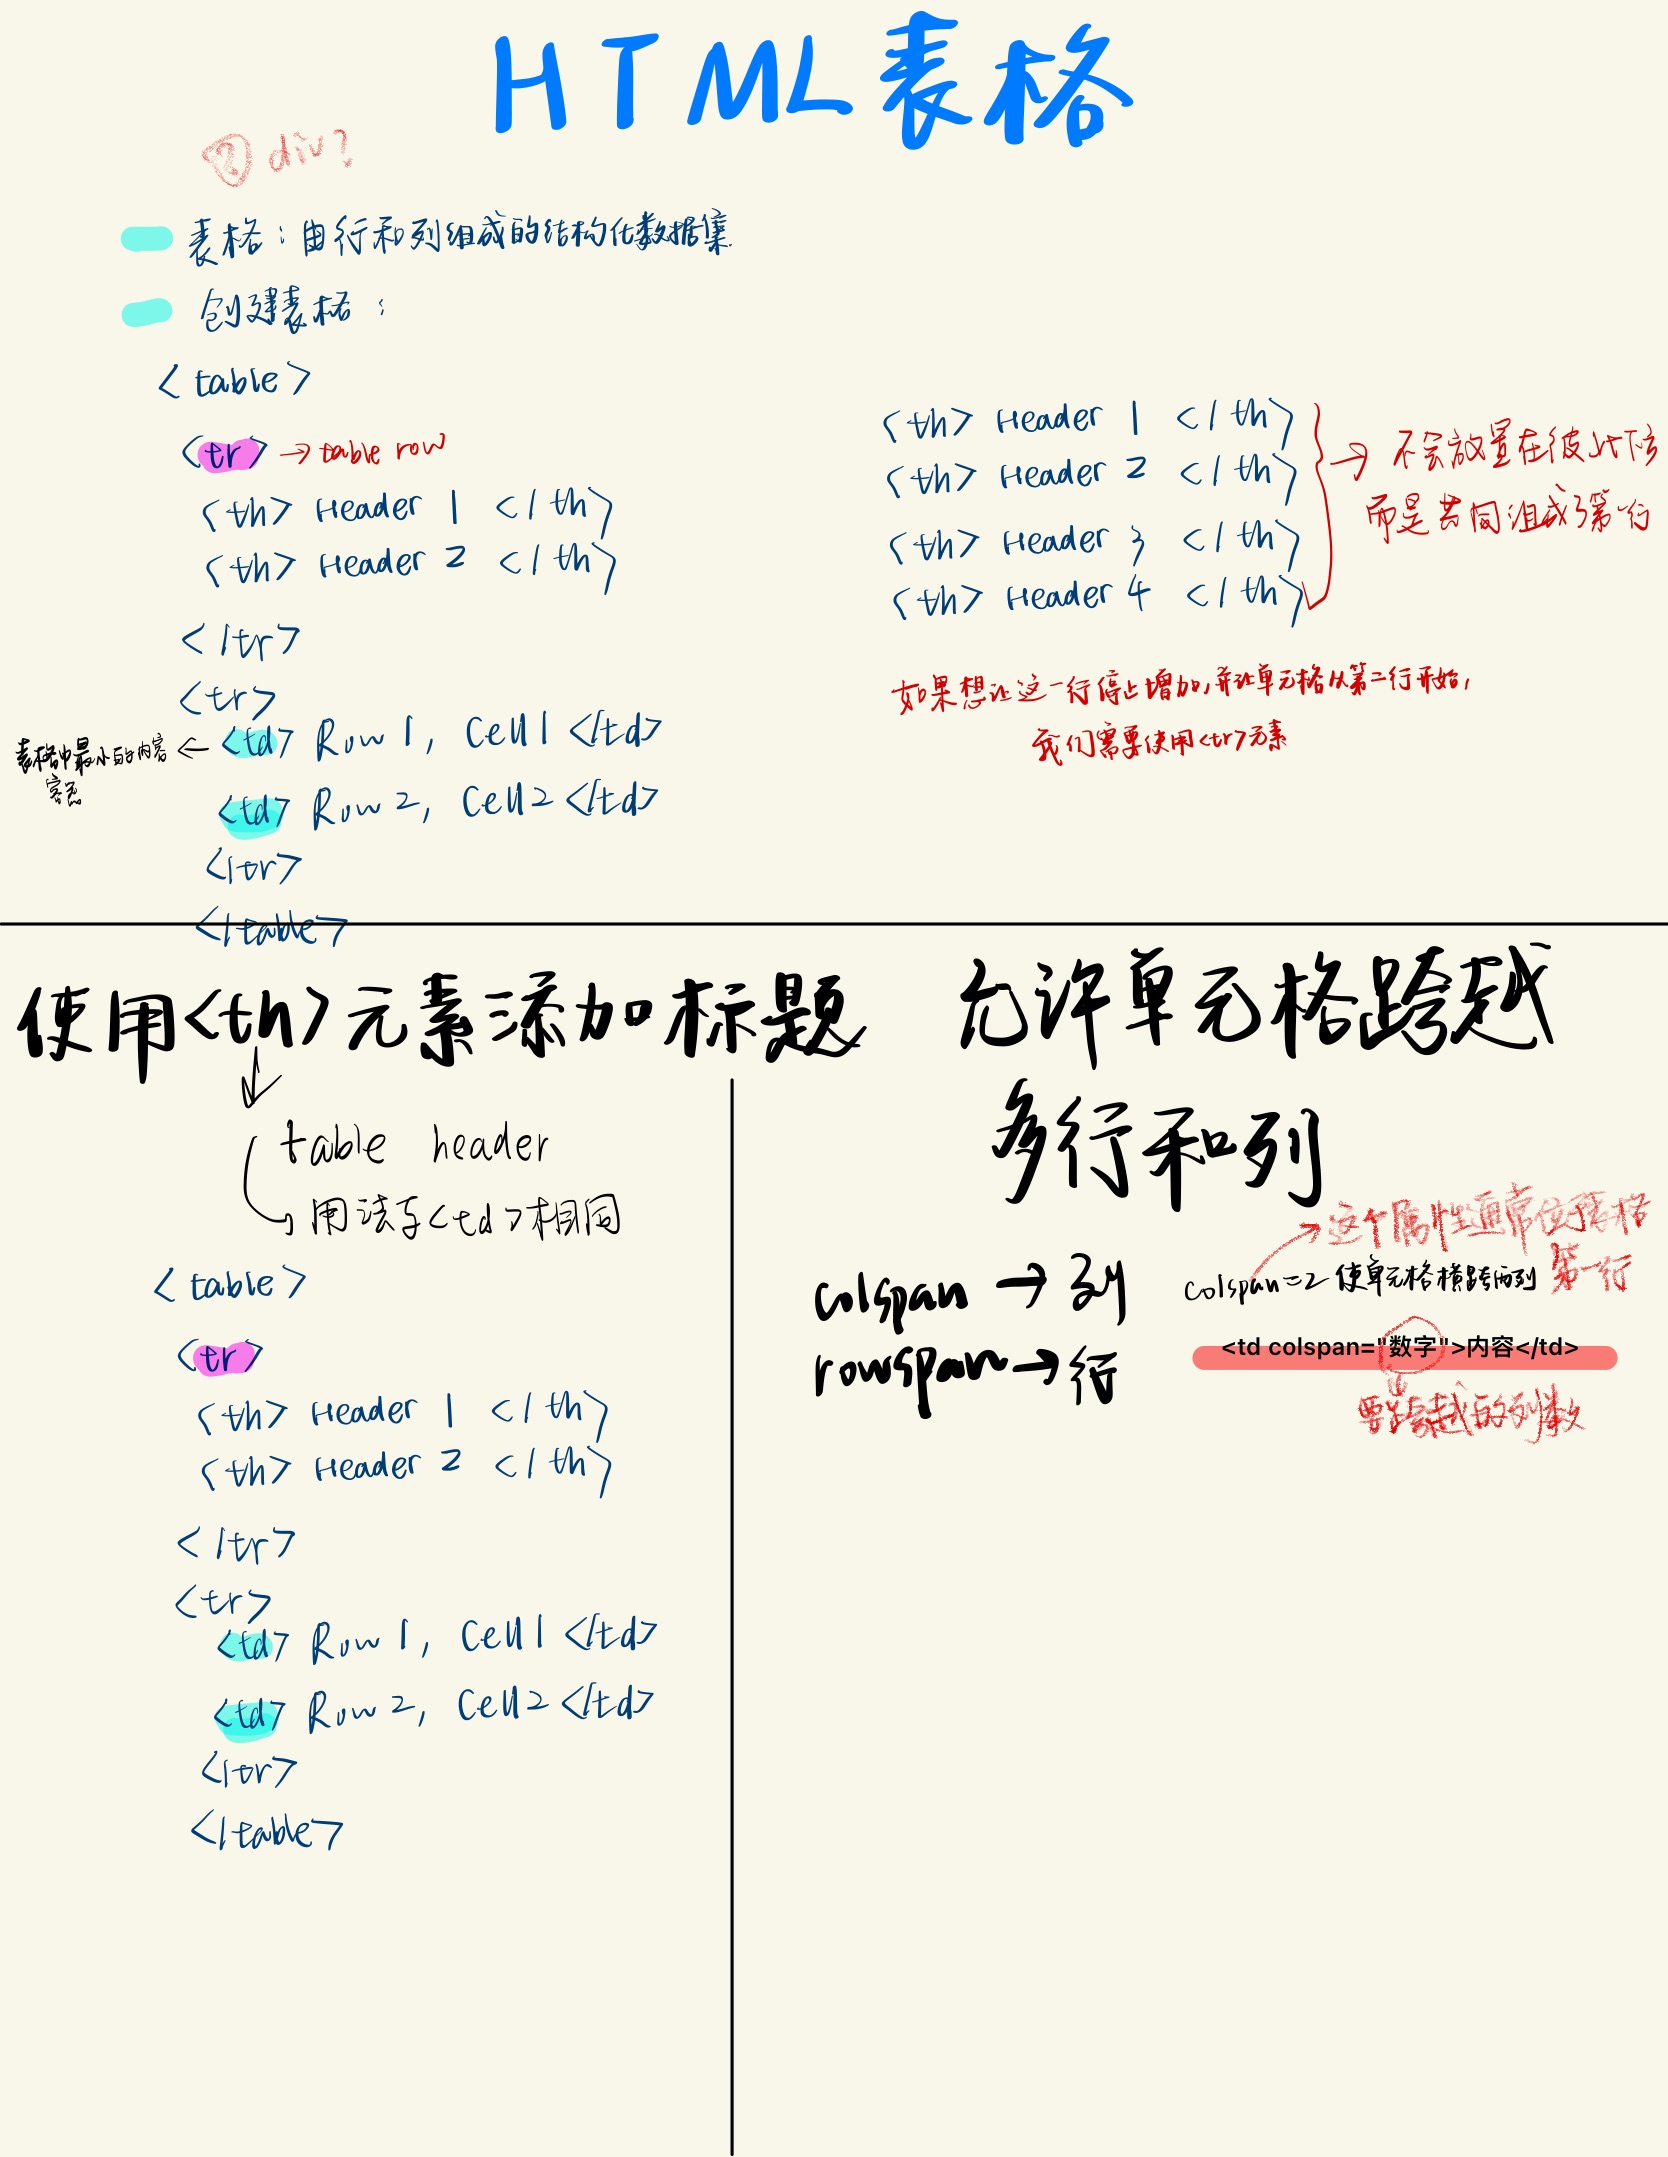 HTML表格
② div?
表格：由行和列组成的结构化数据集
创建表格：
<table>
<tr> → table row
<th> Header 1 </th>
<th> Header 2 </th>
</tr>
<tr>
<td> Row 1, Cell 1 </td>
表格中最小的内容
容器
<td> Row 2, Cell 2 </td>
</tr>
</table>
<th> Header 1 </th>
<th> Header 2 </th>
<th> Header 3 </th>
<th> Header 4 </th>
→ 不会放置在彼此下方
而是共同组成了第一行
如果想让这一行停止增加，并让单元格从第二行开始，
我们需要使用<tr>元素
使用<th>元素添加标题
table header
用法与<td>相同
<table>
<tr>
<th> Header 1 </th>
<th> Header 2 </th>
</tr>
<tr>
<td> Row 1, Cell 1 </td>
<td> Row 2, Cell 2 </td>
</tr>
</table>
允许单元格跨越
多行和列
colspan → 列
rowspan → 行
这个属性通常位于表格
第一行
colspan=2 使单元格横跨两列
<td colspan="数字">内容</td>
要跨越的列数